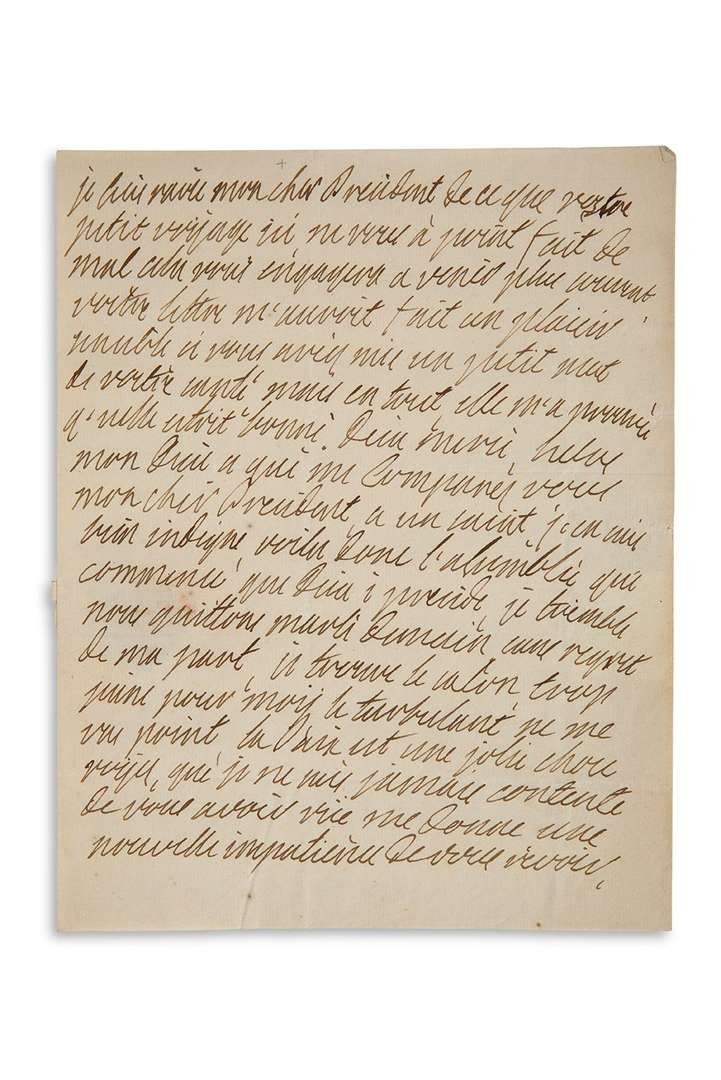 je suis ravie mon cher President de ce que vostre
petit voyage ici ne vous à point fait de
mal cela vous engagera a venir plus souvent,
vostre lettre m'auroit fait un plaisir
sensible si vous aviez mis un petit mot
de vostre santé mais en tout elle m'a prouvée
qu'elle etoit bonne. Dieu merci, helas
mon Dieu a qui me Comparés vous
mon cher President, a un saint, j'en suis
bien indigne, voila donc l'assemblée qui
commence, que Dieu i preside, je tremble
nous quittons marli demain sans regret
de ma part, je trouve le salon trop
jeune pour moi, le turbulant, ne me
vas point, la Paix est une jolie chose
voyés, que je ne suis jamais contente
de vous avoir vue me donne une
nouvelle impatience de vous revoir,